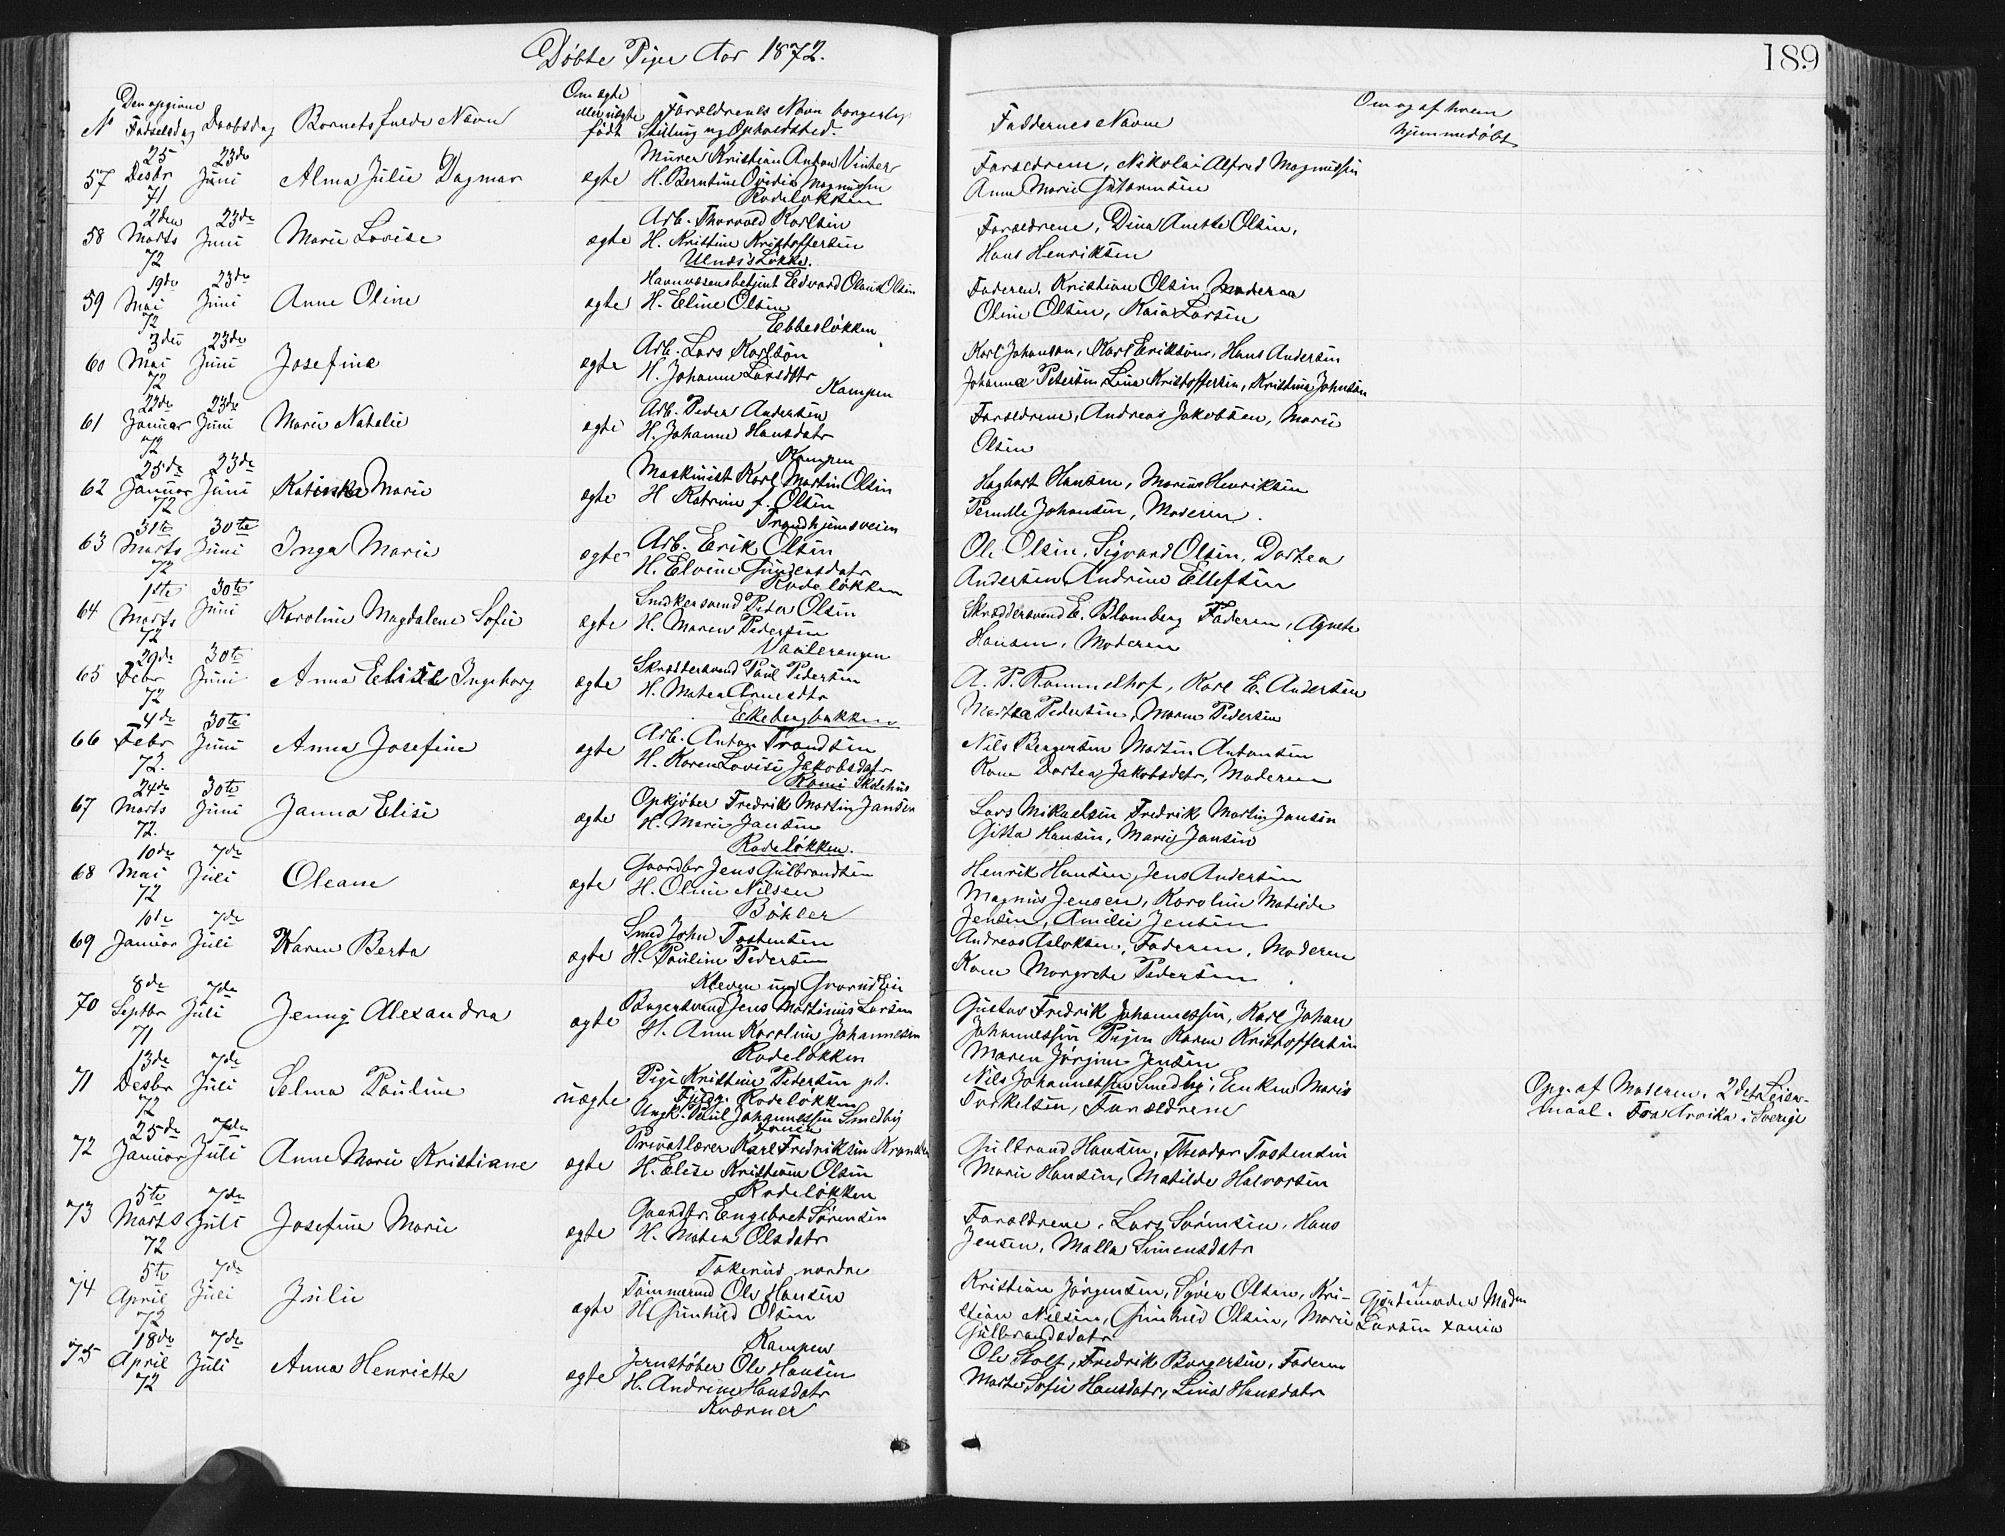 Døbte Piger Aar 1872.
189
No
Den opgivne Fødselsdag
Daabsdag
Barnets fulde Navn
Om ægte eller uægte født
Forældrenes Navn borgerlig Stilling og Opholdssted.
Faddernes Navne
Om og af hvem hjemmedøbt
57 25 Desbr 71 23de Juni Alma Julie Dagmar ægte
Murer Kristian Anton Vinter
H. Berntine Ovidia Magnussen
Rodeløkken
Forældrene, Nikolai Alfred Magnussen
Anne Marie Guttormsen
58 2den Marts 72 23de Juni Marie Lovise ægte
Arb. Thorvald Karlsen
H. Kristine Kristoffersen
Ulnæs's Løkke.
Forældrene, Dina Anette Olsen,
Hans Henriksen
59 19de Mai 72 23de Juni Anne Oline ægte
Havnvæsensbetjent Edvard Olaus Olsen
H. Eline Olsen
Ebbesløkken
Faderen, Kristian Olsen, Moderen
Oline Olsen, Kaia Larsen
60 3die Mai 72 23de Juni Josefine ægte
Arb. Lars Karlson
H. Johanne Larsdtr
Kampen
Karl Johanson, Karl Erikson, Hans Andersen
Johanna Petersen, Lina Kristoffersen, Kristina Johnsen
61 22de Januar 72 23de Juni Marie Natalie ægte
Arb. Peder Andersen
H. Johanne Hansdatr
Kampen
Forældrene, Andreas Jakobsen, Marie
Olsen
62 25de Januar 72 23de Juni Katinka Marie ægte
Maskinist Karl Martin Olsen
H Katrine f. Olsen
Trondhjemsveien
Hagbart Hansen, Marius Henriksen
Pernille Johansen, Moderen.
63 31te Marts 72 30te Juni Inga Marie ægte
Arb. Erik Olsen
H. Elvine Gundersdatr
Rodeløkken
Ole Olsen, Sigvard Olsen, Dortea
Andersen, Andrine Ellefsen
64 1ste Marts 72 30te Juni Karoline Magdalene Sofie ægte
Snedkersvend Peter Olsen
H. Maren Pedersen
Vaalerengen
Skræddersvend E. Blomberg Faderen, Agnete
Hansen, Moderen
65 29de Febr 72 30te Juni Anna Elise Ingeborg ægte
Skræddersvend Paul Pedersen
H. Matea Arnesdtr
Ekebergbakken
A. P. Rommelhof, Karl E. Andersen
Martea Pedersen, Maren Pedersen
66 4de Febr 72. 30te Juni Anna Josefine ægte
Arb. Anton Trondsen
H. Karen Lovise Jakobsdatr
Nils Bergersen Martin Antonsen
Karen Dortea Jakobsdtr, Moderen
67 24de Marts 72. 30te Juni Janna Elise ægte
Opkjøber Fredrik Martin Jansen
H. Marie Jansen
Rodeløkken.
Lars Mikaelsen Fredrik Martin Jansen
Gitta Hansen, Marie Jansen
68 10de Mai 72 7de Juli Oleane ægte
Gaardbr Jens Gulbrandsen
H. Oline Nilsen
Bøhler
Henrik Hansen, Jens Andersen
Magnus Jensen, Karoline Matilde
Jensen, Amilie Jensen
69 10de Januar 7de Juli Karen Berta ægte
Smed John Tostensen
H. Pauline Pedersen
Andreas Aslaksen, Faderen, Moderen
Karen Margrete Pedersen
70 8de Septbr 71 7de Juli Jenny Alexandra ægte
Bagersvend Jens Martinius Larsen
H. Anne Karoline Johannesen
Rodeløkken
Gustav Fredrik Johannessen, Karl Johan
Johannessen Pigen Karen Kristoffersen
Maren Jørgine Jensen
71 13de Desbr 72 7de Juli Selma Pauline uægte
Pige Kristine Pedersen pt.
Rodeløkken
Ungk. Paul Johannessen Smedby
Nils Johannessen Smedby, Enken Marie
Torkelsen, Forældrene
Opg. af Moderen. 2det Leier-
maal. Fra Arvika i Sverige
72 25de Januar 7de Juli Anne Marie Kristiane ægte
Privatlærer Karl Fredriksen
H. Elise Kristiane Olsen
Rodeløkken
Gulbrand Hansen, Theodor Tostensen
Marie Hansen, Matilde Halvorsen
73 5te Marts 72 7de Juli Josefine Marie ægte
Gaardbr. Engebret Sørensen
H. Matea Olsdatr
Tokerud nordre
Forældrene, Lars Sørensen, Hans
Jensen, Malla Simensdatr
74 5te April 72 7de Juli Julie ægte
Tømmermd Ole Hansen
H Gunhild Olsen
Kampen
Kristian Jørgensen, Syver Olsen, Kri-
stian Nilsen, Gunhild Olsen, Marie
Gulbrandsdatr
af
Gjordemoder Madm
Larsen xania
75 18de April 72 7de Juli Anna Henriette ægte
Jernstøber Ole Hansen
H. Andrine Hansdatr
Kværner
Ole Holt, Fredrik Borgersen, Faderen
Marte Sofie Hansdatr, Lina Hansdatr